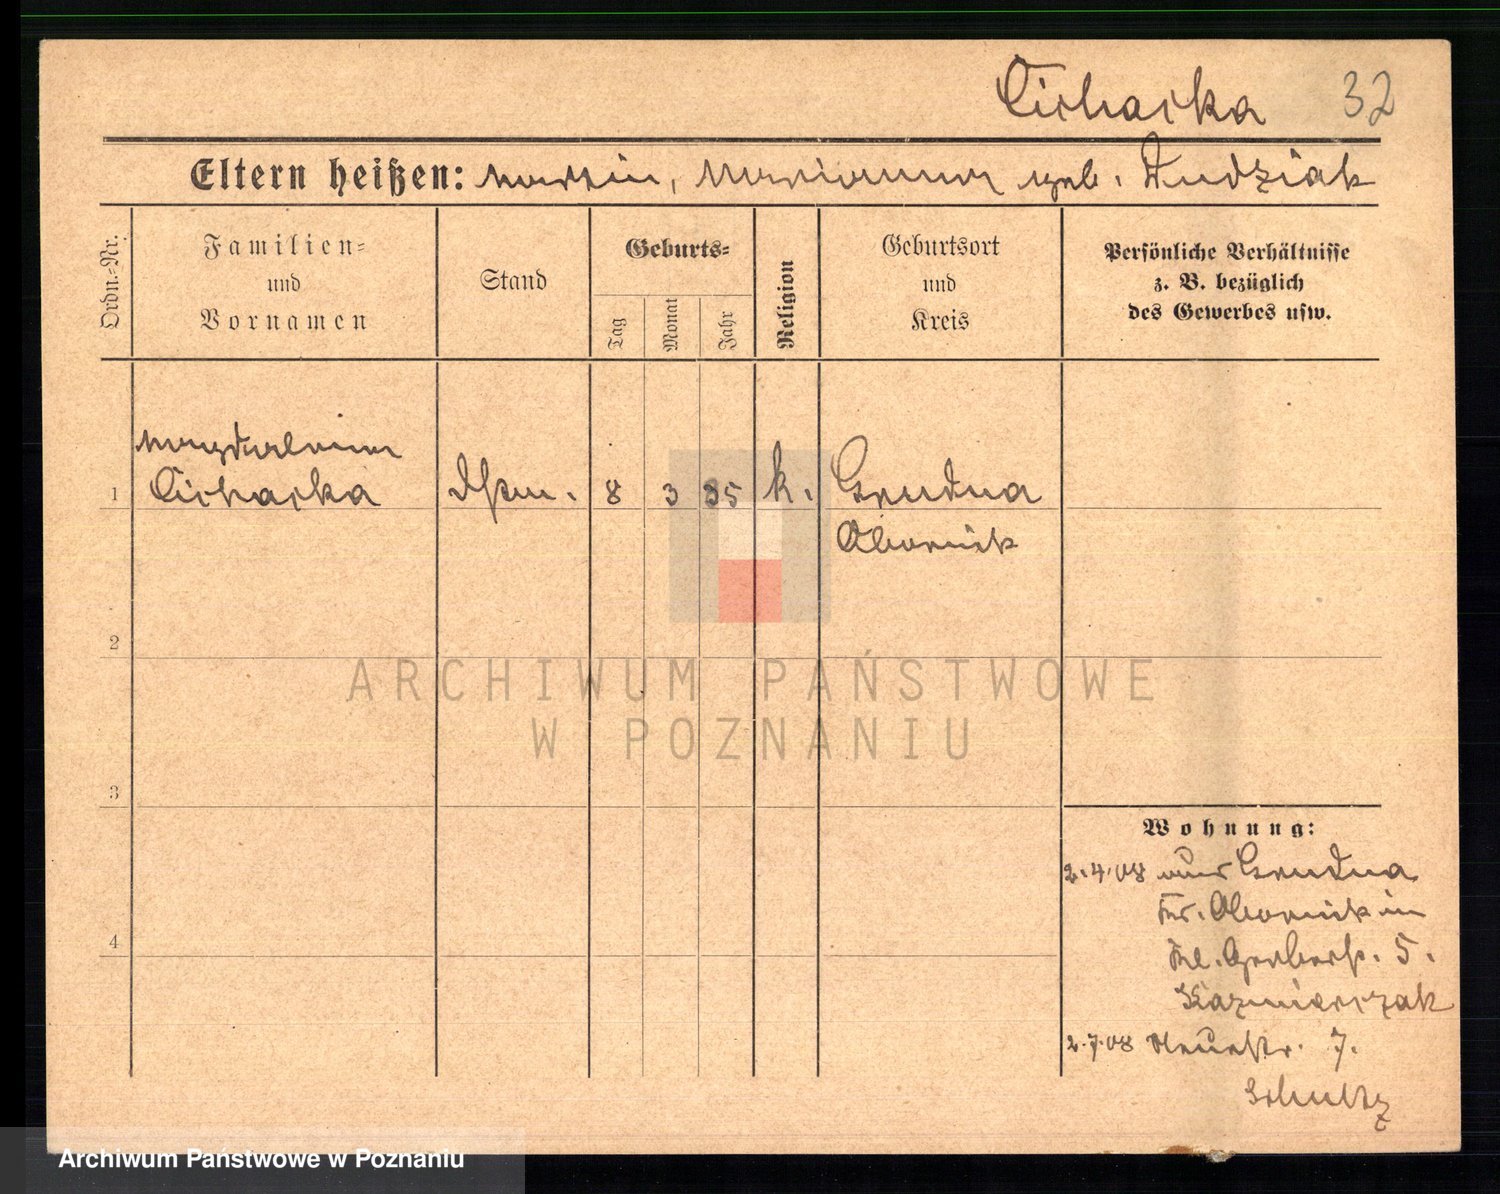 Cichacka 32
Eltern heißen: Martin, Marianna geb. Dudziak
Ordn.-Nr.
Familien-
und
Vornamen
Stand
Geburts-
Tag
Monat
Jahr
Religion
Geburtsort
und
Kreis
Persönliche Verhältnisse
z. B. bezüglich
des Gewerbes usw.
Magdalena
1 Cichacka 8 3 85 k. Grudna
Obornik
2
3
4
Wohnung:
2.4.08 aus Grudna
Kr. Obornik in
Kl. Gerberstr. 5.
Kazmierczak
2.7.08 Neuestr. 7.
Schultz
ARCHIWUM PAŃSTWOWE
W POZNANIU
Archiwum Państwowe w Poznaniu